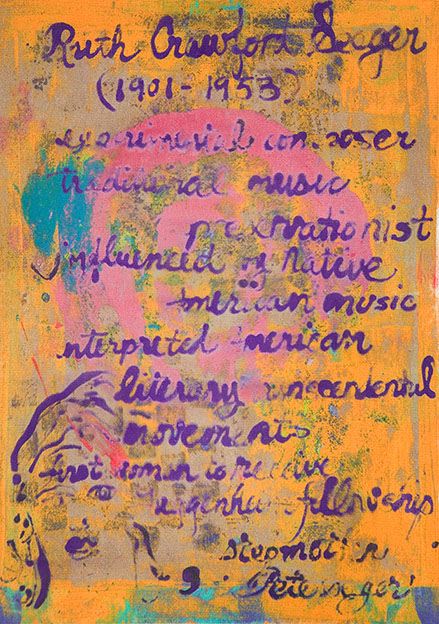 Ruth Crawford Seeger
(1901-1953)
experimental composer
traditional music
preservationist
influenced by Native
American music
interpreted American
literary transcendental
movements
first woman to receive
fellowship
stepmother
Pete Seeger